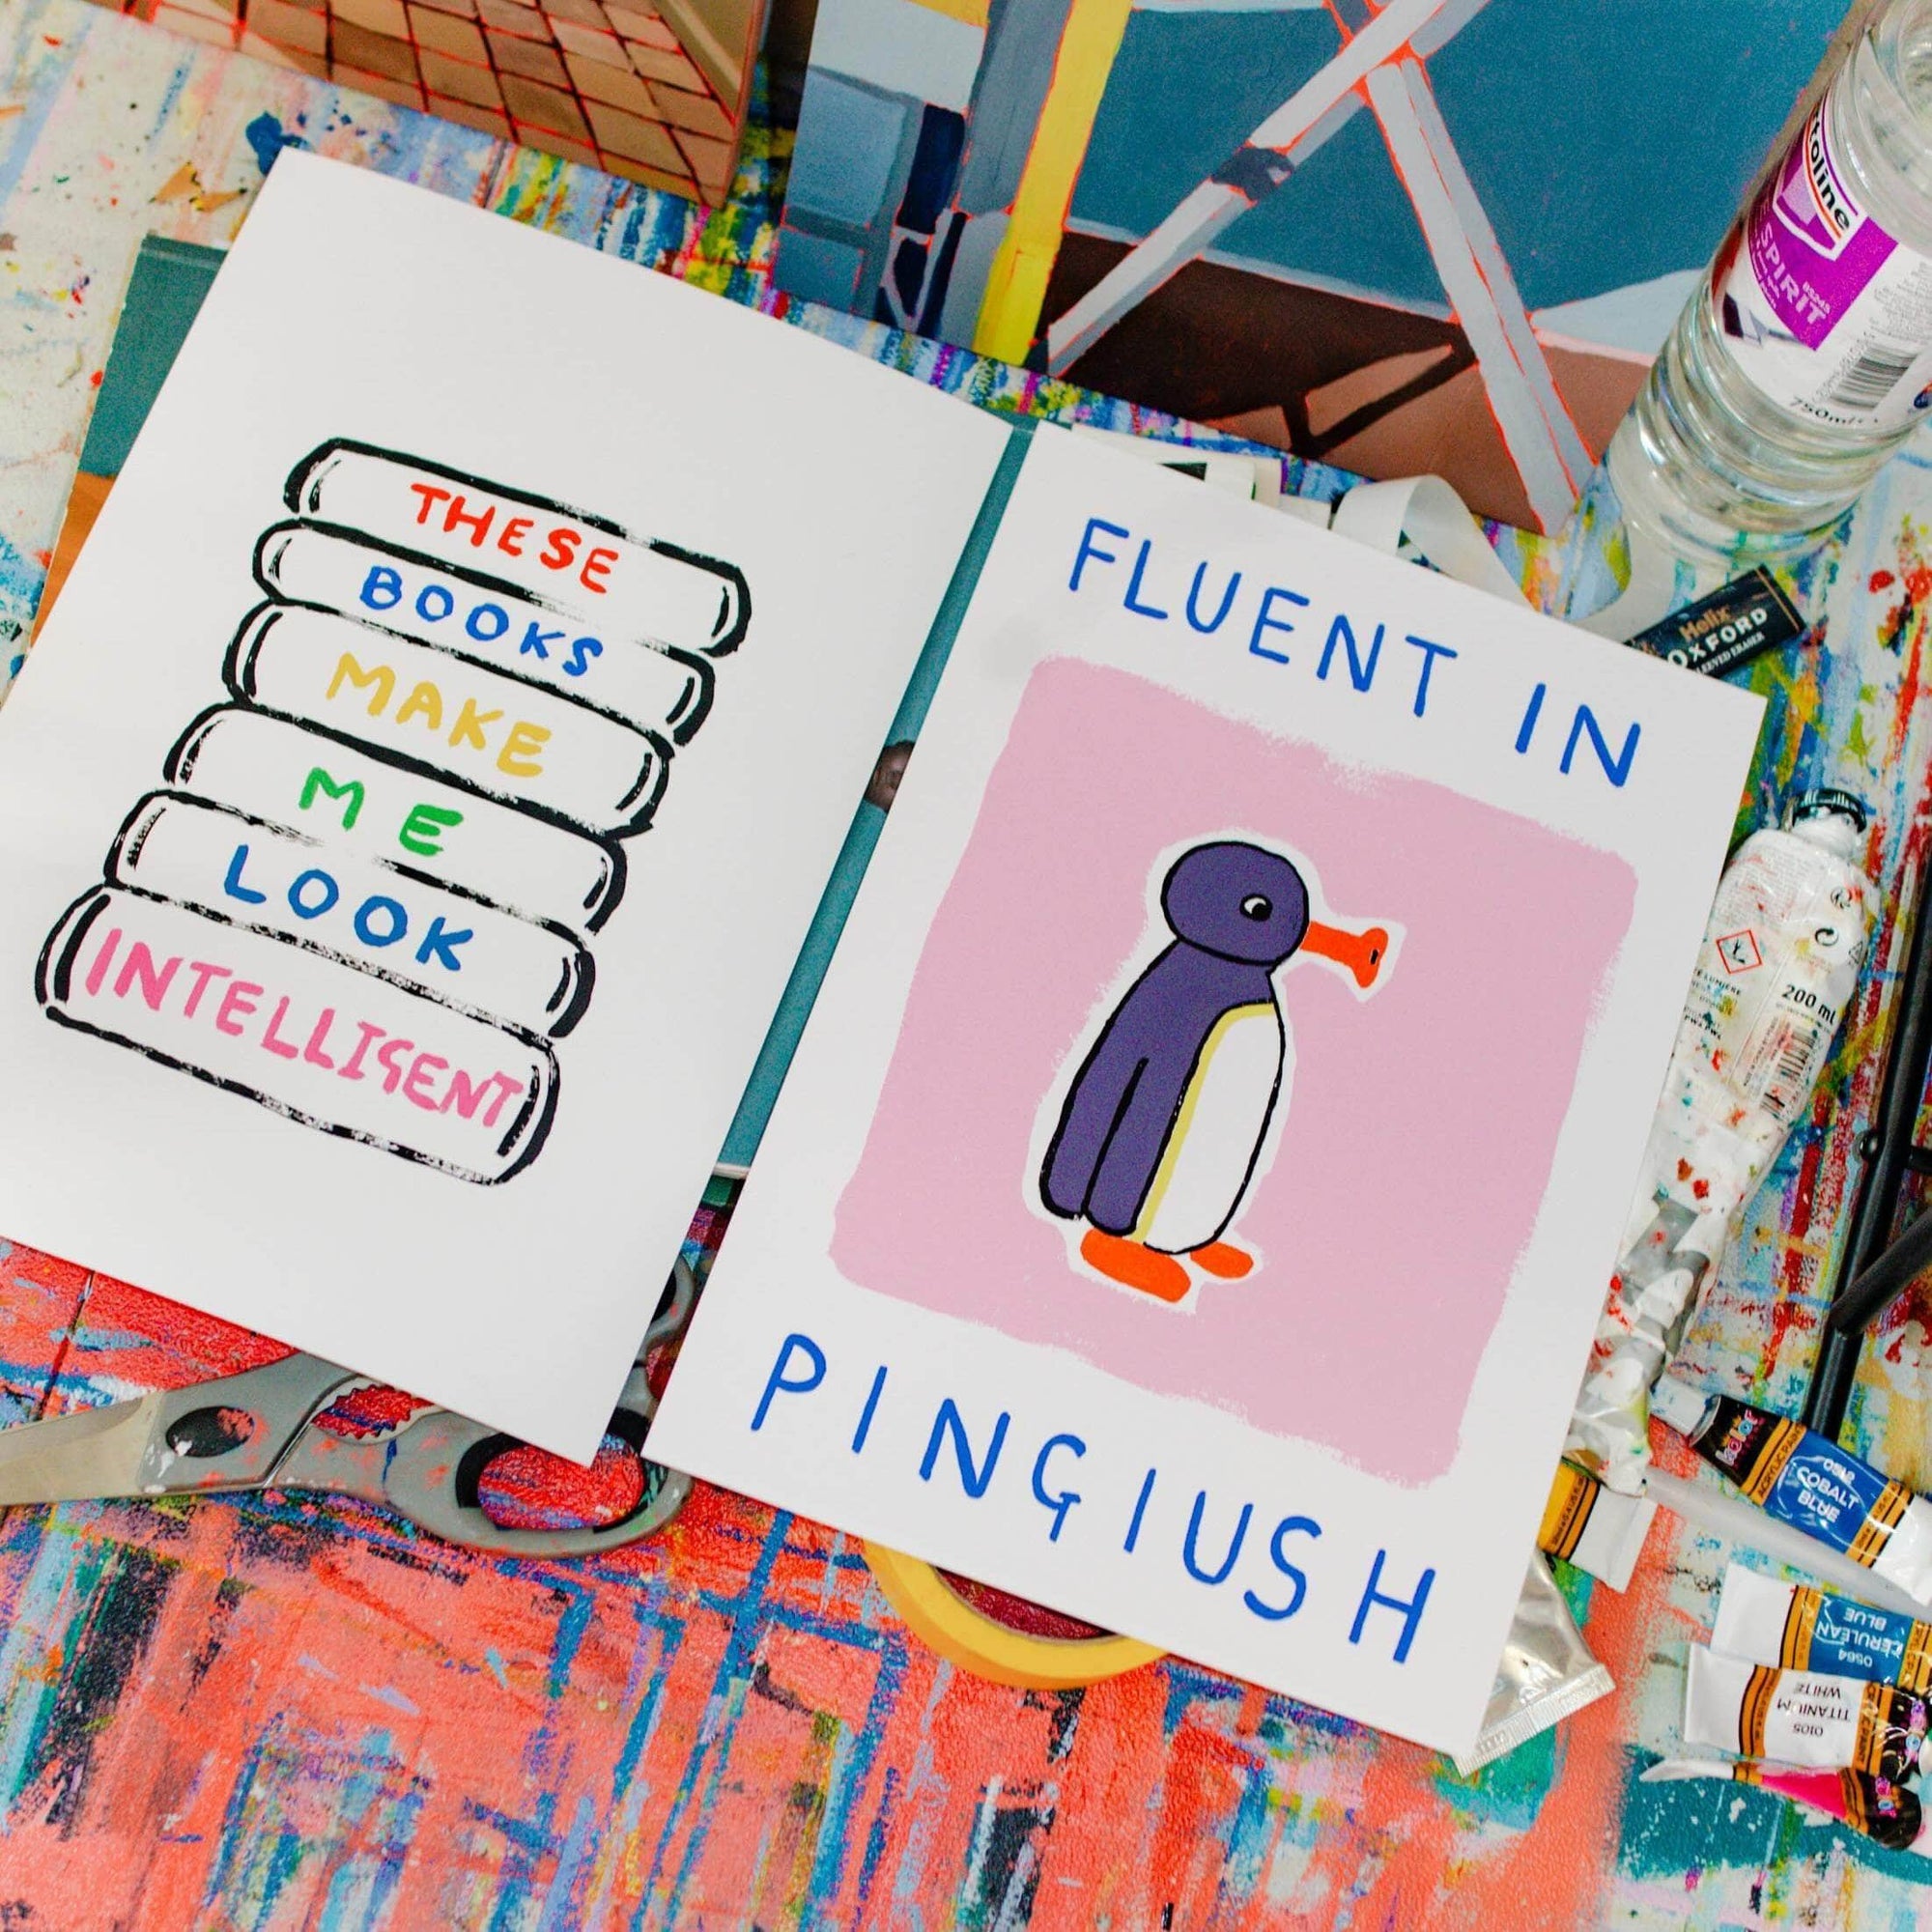 THESE
BOOKS
MAKE
ME
LOOK
INTELLIGENT
FLUENT IN
PINGIUSH
SPIRIT
BS245
750ml
Helix
OXFORD
200 ml
ACRYLIC PAINT
0512
COBALT
BLUE
0564
CERULEAN
BLUE
0105
TITANIUM
WHITE